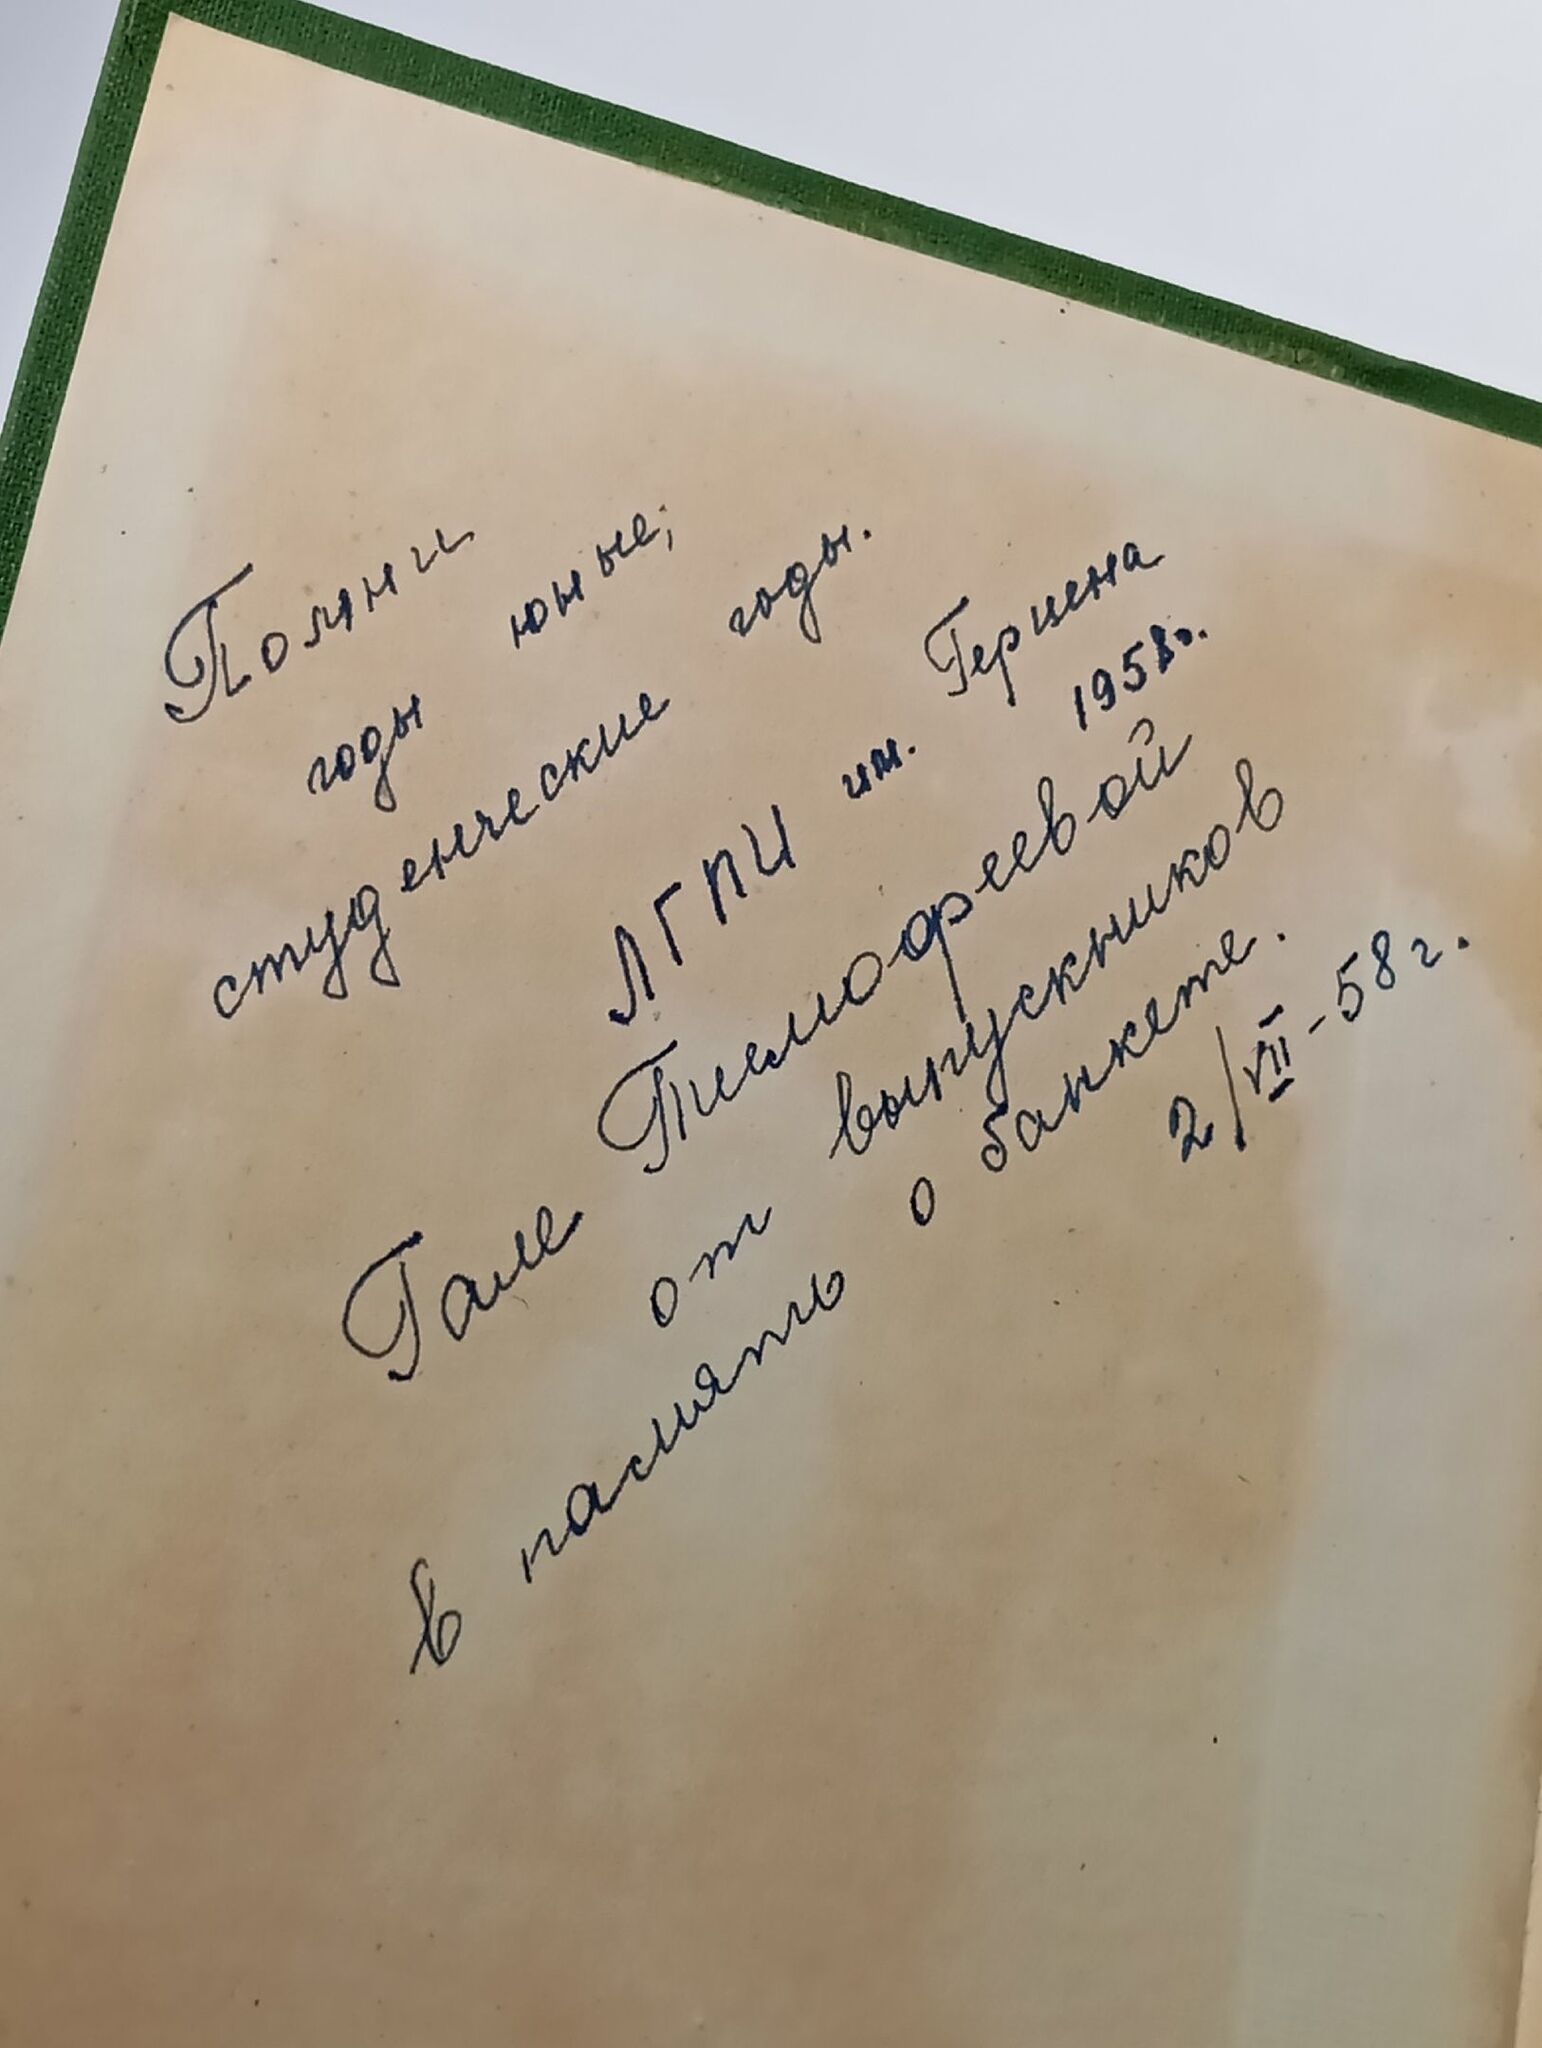 Помни
годы юные,
студенческие годы.
ЛГПИ им. Герцена
1958г.
Гале Тимофеевой
от выпускников
в память о банкете.
2/VII-58г.